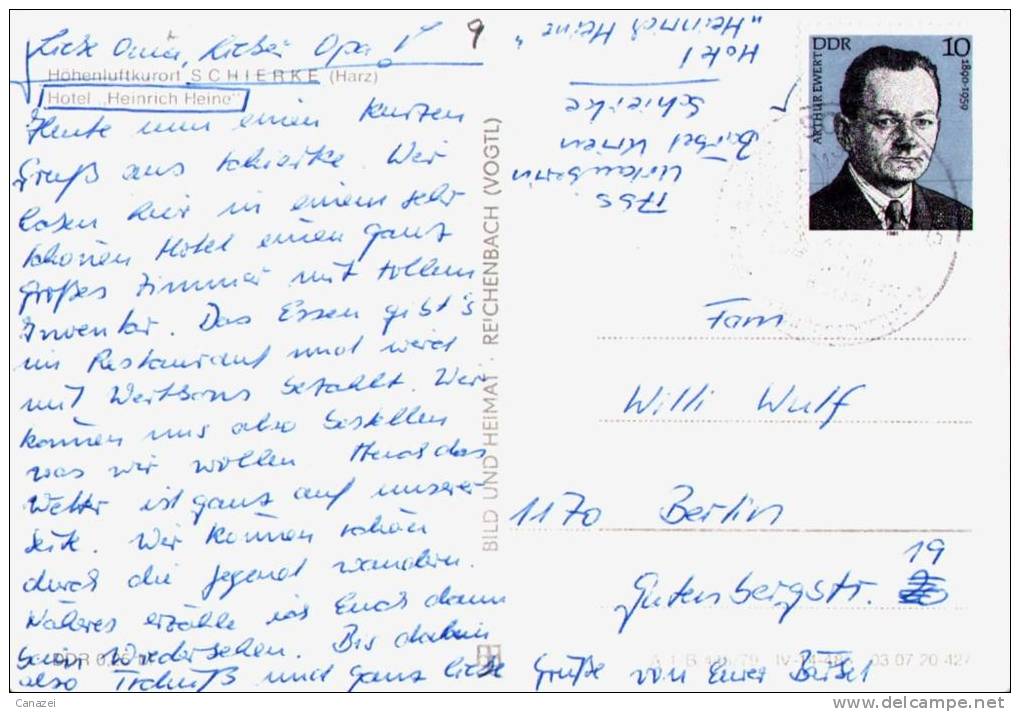 Liebe Oma, Lieber Opa!
9
Höhenluftkurort SCHIERKE (Harz)
Hotel „Heinrich Heine"
Heute nun einen kurzen
Gruß aus Schierke. Wir
haben hier in einem sehr
schönen Hotel einen ganz
großes Zimmer mit tollem
Inventar. Das Essen gibt's
im Restaurant und wird
mit Wertbons bezahlt. Wir
können uns also bestellen
was wir wollen. Auch das
Wetter ist ganz auf unserer
Seite. Wir können schön
durch die Gegend wandern.
Näheres erzähle ich Euch dann
beim Wiedersehen. Bis dahin
also Tschüß und ganz liebe Grüße von Eurer Bärbel
BILD UND HEIMAT · REICHENBACH (VOGTL)
Urlauberin
Bärbel
Schierke
Hotel
„Heinrich Heine"
DDR 10
ARTHUR EWERT 1890-1959
1981
Fam
Willi Wulf
1170 Berlin
19
Gutenbergstr.
03 07 20 427